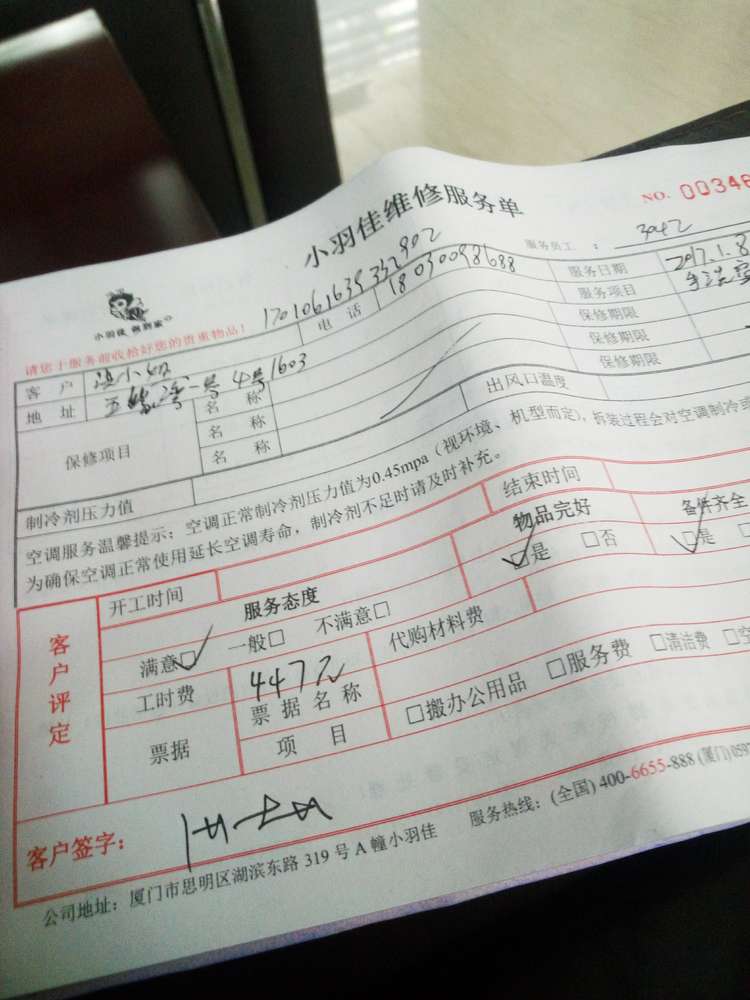 小羽佳维修服务单
NO. 00346
小羽佳 俐到家
1701061639332902
服务员工： 3042
请您于服务前收拾好您的贵重物品！
电 话 18030098688
服务日期 2017.1.8
客 户 小姐
服务项目
地 址 五缘湾一号4号1603
保修期限
保修项目
名 称
名 称
名 称
保修期限
保修期限
制冷剂压力值
出风口温度
空调服务温馨提示：空调正常制冷剂压力值为0.45mpa（视环境、机型而定），拆装过程会对空调制冷
为确保空调正常使用延长空调寿命，制冷剂不足时请及时补充。
客户评定
开工时间
结束时间
服务态度
物品完好
备件齐全
满意□✓ 一般□ 不满意□
□✓是 □否
□✓是
工时费 447元
代购材料费
票据
票 据 名 称
项 目
□搬办公用品 □服务费 □清洁费 □空
客户签字：
公司地址：厦门市思明区湖滨东路 319 号 A 幢小羽佳
服务热线：(全国) 400-6655-888 (厦门) 0592